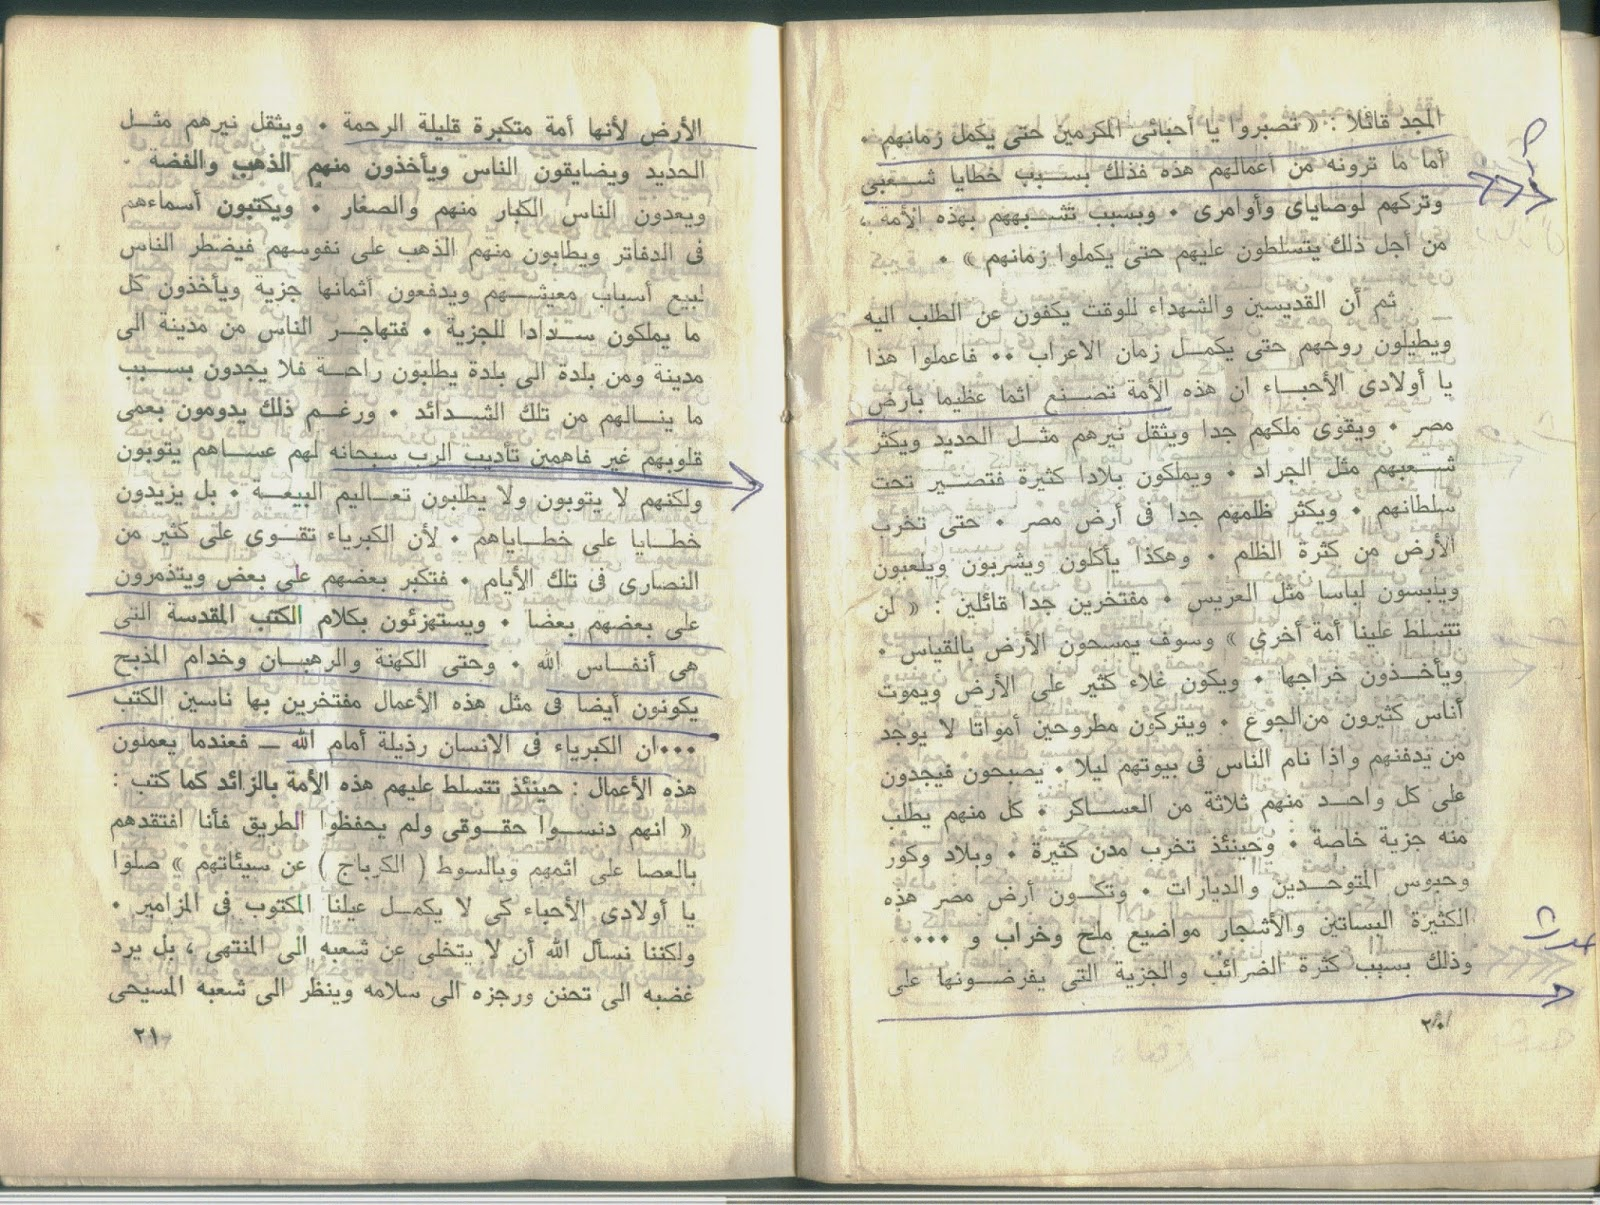 المجد قائلا : « تصبروا يا أحبائى المكرمين حتى يكمل زمانهم .
أما ما ترونه من أعمالهم هذه فذلك بسـبب خطايا شـعبى
وتركهم لوصاياى وأوامرى . وبسبب تشـبههم بهذه الأمة ،
من أجل ذلك يتسلطون عليهم حتى يكملوا زمانهم » .
ثم أن القديسين والشهداء للوقت يكفون عن الطلب اليه
ويطيلون روحهم حتى يكمـل زمان الاعراب .. فاعملوا هذا
يا أولادى الأحبـاء ان هذه الأمة تصـنع اثما عظيما بأرض
مصر . ويقوى ملكهم جدا ويثقل نيرهم مثـل الحديد ويكثر
شـعبهم مثل الجراد . ويملكون بلادا كثيرة فتصـير تحت
سلطانهم . ويكثر ظلمهم جدا فى أرض مصر . حتى تخرب
الأرض من كثرة الظلم . وهكذا يأكلون ويشربون ويلعبون
ويلبسون لباسا مثل العريس . مفتخرين جدا قائلين : « لن
تتسلط علينا أمة أخرى » وسوف يمسحون الأرض بالقياس .
ويأخـذون خراجها . ويكون غلاء كثير على الأرض ويموت
أناس كثيرون من الجوع . ويتركون مطروحين أمواتا لا يوجد
من يدفنهم واذا نام الناس فى بيوتهم ليلا . يصبحون فيجدون
على كل واحـد منهم ثلاثة من العسـاكر . كل منهم يطلب
منه جزية خاصة . وحينئذ تخرب مدن كثيرة . وبلاد وكور
وحبوس المتوحـدين والديارات . وتكـون أرض مصر هذه
الكثيرة البساتين والأشجار مواضيع ملح وخراب و ....
وذلك بسبب كثرة الضرائب والجزية التى يفرضـونها على
٢٠
الأرض لأنها أمة متكبرة قليلة الرحمة . ويثقل نيرهم مثـل
الحديد ويضايقون الناس ويأخذون منهم الذهب والفضة .
ويعدون الناس الكبار منهم والصغار . ويكتبون أسماءهم
فى الدفاتر ويطابون منهم الذهب على نفوسهم فيضطر الناس
لبيع أسباب معيشـهم ويدفعون أثمانها جزية ويأخذون كل
ما يملكون سـدادا للجزية . فتهاجـر الناس من مدينة الى
مدينة ومن بلدة الى بلدة يطلبون راحـة فلا يجدون بسـبب
ما ينـالهم من تلك الشـدائد . ورغـم ذلك يدومون بعمى
قلوبهم غير فاهمين تأديب الرب سبحانه لهم عسـاهم يتوبون
ولكنهم لا يتوبون ولا يطلبون تعـاليم البيعـة . بل يزيدون
خطـايا على خطـاياهم . لأن الكبرياء تقـوى على كثير من
النصارى فى تلك الأيام . فتكبر بعضهم على بعض ويتذمرون
على بعضهم بعضا . ويستهزئون بكلام الكتب المقدسة التى
هى أنفـاس الله . وحتى الكهنة والرهبـان وخدام المذبح
يكونون أيضا فى مثل هذه الأعمال مفتخرين بها ناسين الكتب
...ان الكبرياء فى الانسان رذيلة أمام الله ــ فعندما يعملون
هذه الأعمال : حينئذ تتسلط عليهم هذه الأمة بالزائد كما كتب :
« انهم دنسـوا حقـوقى ولم يحفظوا الطريق فأنا افتقدهم
بالعصا على اثمهم وبالسوط ( الكرباج ) عن سيئاتهم » صلوا
يا أولادى الأحباء كى لا يكمـل عيلنا المكتوب فى المزامير .
ولكننا نسأل الله أن لا يتخلى عن شعبه الى المنتهى ، بل يرد
غضبه الى تحنن ورجزه الى سلامه وينظر الى شعبه المسيحى
٢١